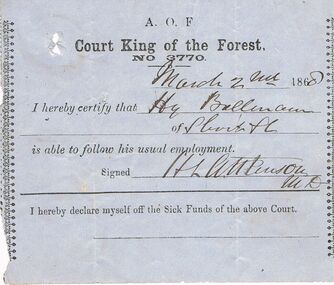 A. O. F
Court King of the Forest.
NO 3770.
March 2nd 1868
I hereby certify that Hy
of
is able to follow his usual employment.
Signed H L Atkinson
M D
I hereby declare myself off the Sick Funds of the above Court.